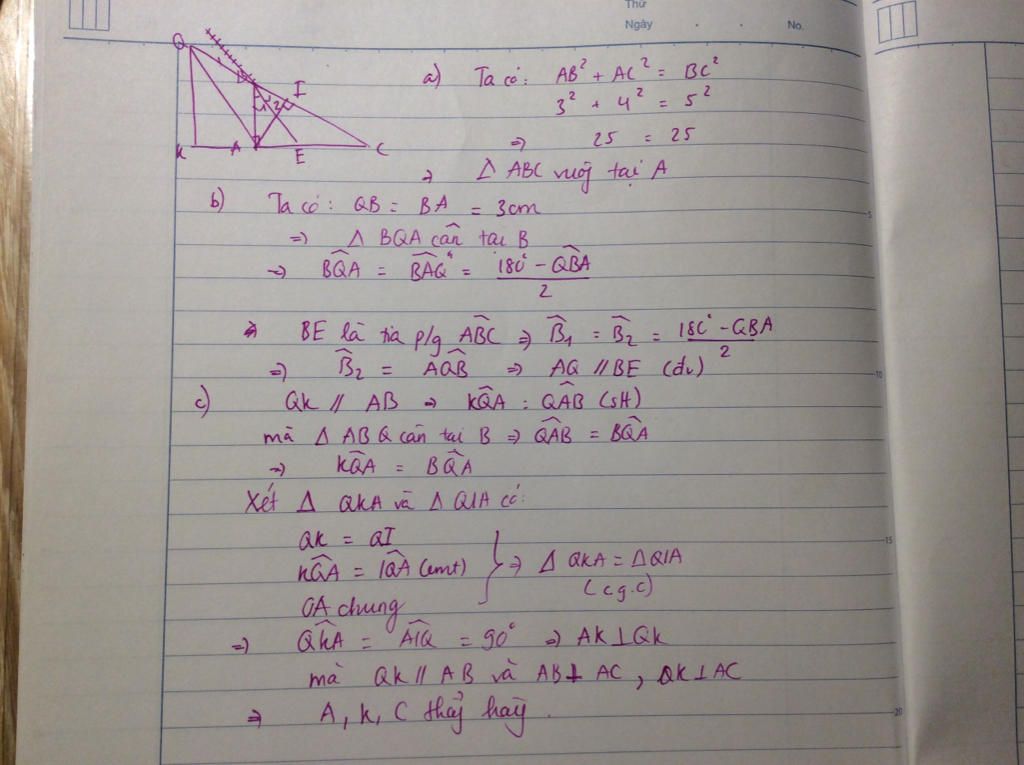 Thứ
Ngày . . No.
Q
B
I
1 2
K A E C
a) Ta có: AB² + AC² = BC²
3² + 4² = 5²
⇒ 25 = 25
⇒ Δ ABC vuông tại A
b) Ta có: QB = BA = 3cm
⇒ Δ BQA cân tại B
⇒ \widehat{BQA} = \widehat{BAQ} = \frac{180° - \widehat{QBA}}{2}
BE là tia p/g \widehat{ABC} ⇒ \widehat{B}_1 = \widehat{B}_2 = \frac{180° - QBA}{2}
⇒ \widehat{B}_2 = \widehat{AQB} ⇒ AQ // BE (đv)
c) QK // AB ⇒ \widehat{KQA} = \widehat{QAB} (SH)
mà Δ ABQ cân tại B ⇒ \widehat{QAB} = \widehat{BQA}
⇒ \widehat{KQA} = \widehat{BQA}
Xét Δ QKA và Δ QIA có:
QK = QI
\widehat{KQA} = \widehat{IQA} (cmt) } ⇒ Δ QKA = Δ QIA
(c.g.c)
QA chung
⇒ \widehat{QKA} = \widehat{AIQ} = 90° ⇒ AK ⊥ QK
mà QK // AB và AB ⊥ AC, QK ⊥ AC
⇒ A, K, C thẳng hàng.
5
10
15
20